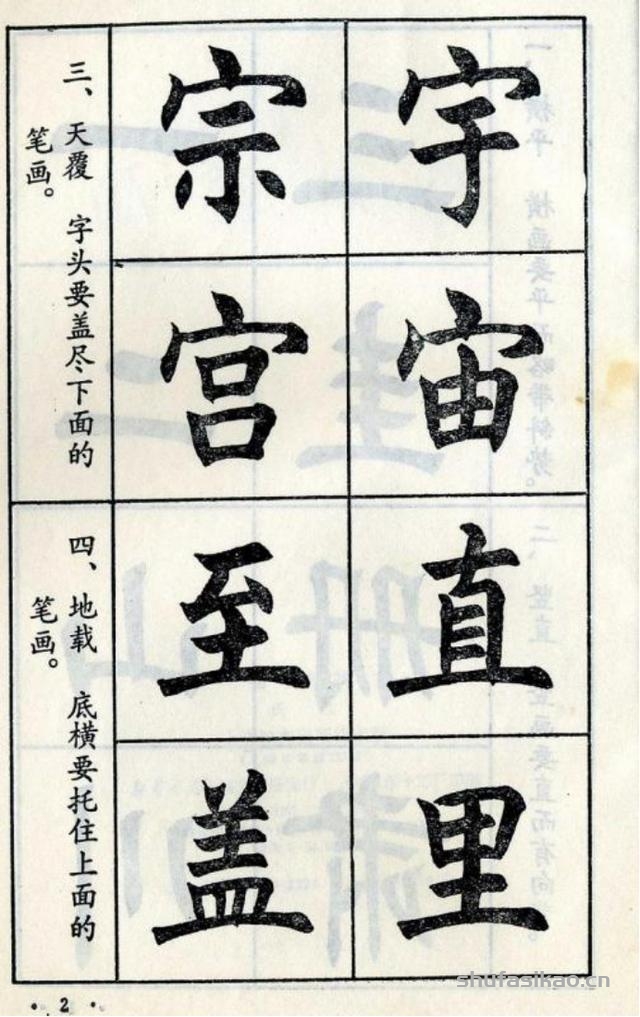 宇宗
宙宫
三、天覆 字头要盖尽下面的
笔画。
直至
里盖
四、地载 底横要托住上面的
笔画。
·2·
shufasikao.cn